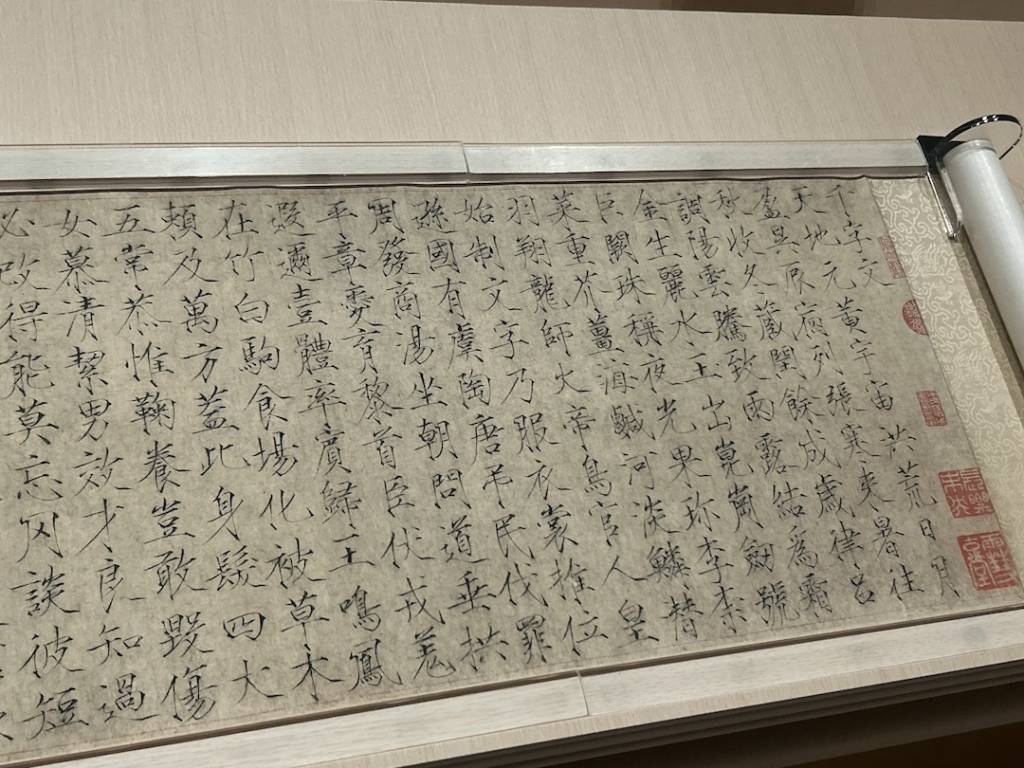 千字文
天地元黄宇宙洪荒日月
盈昃辰宿列張寒來暑往
秋收冬蔵閏餘成歲律呂
調陽雲騰致雨露結爲霜
金生麗水玉出崑崗劒號
巨闕珠稱夜光果珍李柰
菜重芥薑海鹹河淡鱗潛
羽翔龍師火帝鳥官人皇
始制文字乃服衣裳推位
遜國有虞陶唐弔民伐罪
周發商湯坐朝問道垂拱
平章愛育黎首臣伏戎羌
遐邇壹體率賓歸王鳴鳳
在竹白駒食場化被草木
賴及萬方蓋此身髮四大
五常恭惟鞠養豈敢毀傷
女慕清絜男效才良知過
必改得能莫忘罔談彼短